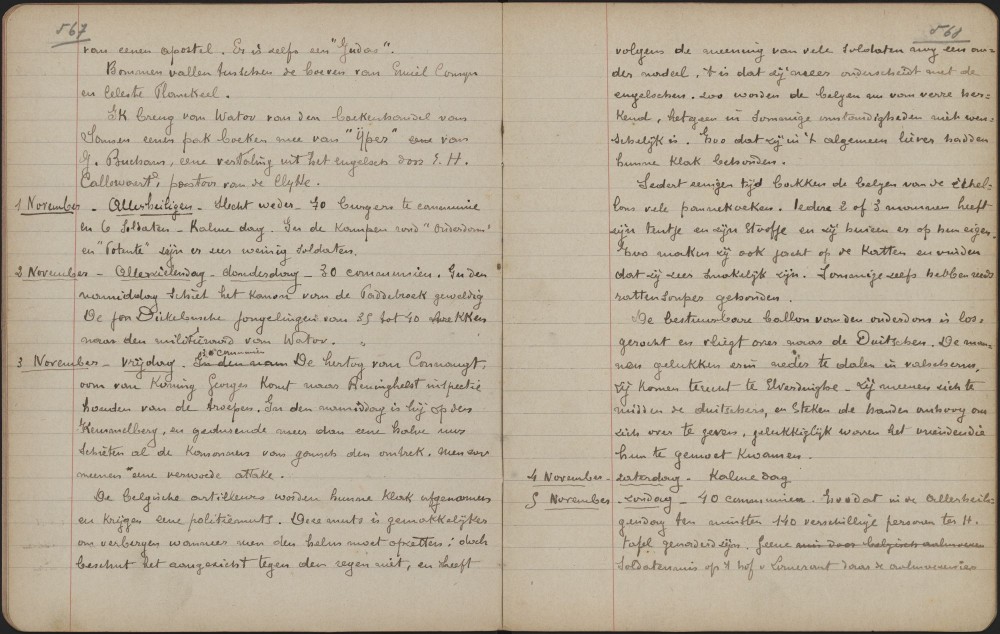 567
van eenen apostel. Er is zelfs een "Judas".
Bommen vallen tusschen de hoeven van Emiel Comyn
en Celeste Planckeel.
Ik breng van Watou van den boekenhandel van
Jansen eenen pak boeken mee van "Yper" eene van
G. Buchans, eene vertaling uit het engelsch door E. H.
Callewaert, pastoor van de Clytte.
1 November - Allerheiligen - Slecht weder - 70 burgers te communie
en 6 Soldaten - Kalme dag. In de Kampen rond "Ouderdom"
en "Potente" zijn er zeer weinig soldaten.
2 November - Allerzielendag - donderdag - 30 communien. In den
namiddag schiet het kanon van de Paddebroek geweldig
De Dickebusche jongelingen van 35 tot 40 trekken
naar den militieraad van Watou.
3 November - Vrijdag. In den nam De hertog van Connaugt,
oom van Koning Georges komt naar Reninghelst inspectie
houden van de troepen. In den namiddag is hij op den
Kemmelberg, en gedurende meer dan eene halve uur
schieten al de Kanonnen van gansch den omtrek. Men zou
meenen eene verwoede attake.
De Belgische artilleurs worden hunne klak afgenomen
en krijgen eene politiemuts. Deze muts is gemakkelijker
om verbergen wanneer men den helm moet opzetten; doch
beschut het aangezicht tegen den regen niet, en heeft
568
volgens de meening van vele soldaten nog een an-
der nadeel, 't is dat zij meer onderscheidt met de
engelschen. Zoo worden de belgen nu van verre her-
kend, hetgeen in sommige omstandigheden niet wen-
schelijk is. Zoo dat zij in 't algemeen liever hadden
hunne klak behouden.
Sedert eenigen tijd bakken de belgen van de échel-
lons vele pannekoeken. Iedere 2 of 3 mannen heeft
zijn tentje en zijn stoofje en zij huizen er op hun eigen.
Zoo maken zij ook jacht op de Katten en vinden
dat zij zeer smakelijk zijn. Sommige zelfs hebben reeds
rattensouper gehouden.
De bestuurbare ballon van den ouderdom is los-
geraakt en vliegt over naar de Duitschen. De man-
nen gelukken erin neder te dalen in valscherm,
zij komen terecht te Elverdinghe - Zij meenen zich te
midden de duitschers, en steken de handen omhoog om
zich over te geven, gelukkiglijk waren het vrienden die
hun te gemoet kwamen.
4 November - zaterdag - Kalme dag
5 November - zondag - 40 communien. Zoodat in de Allerheili-
gendag ten minsten 140 verschillige personen ter H.
tafel genaderd zijn. Geene
Soldatenmis op 't hof v Lamerant daar de aalmoezenier